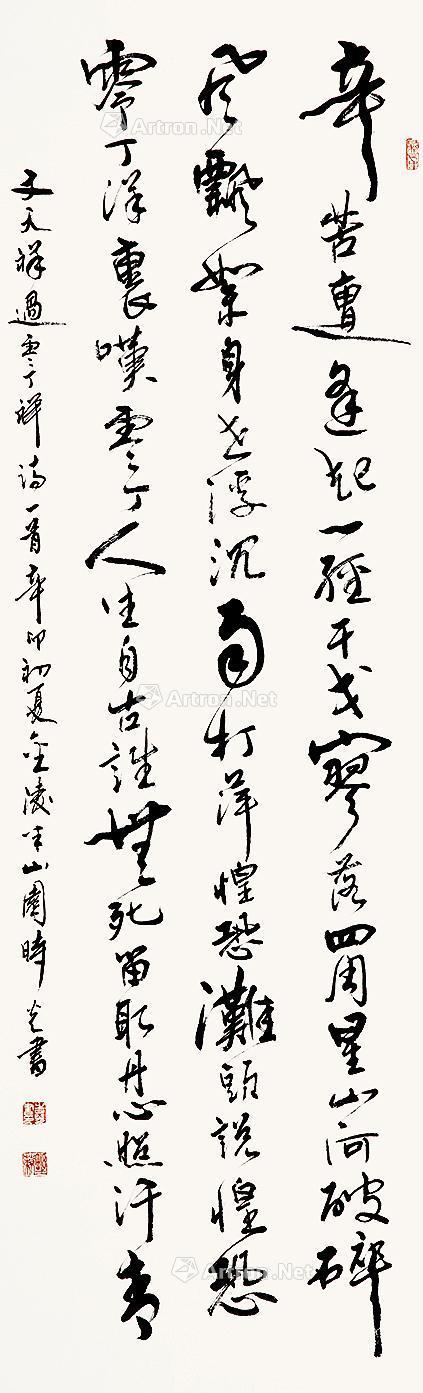 辛苦遭逢起一經干戈寥落四周星山河破碎
風飄絮身世浮沉雨打萍惶恐灘頭說惶恐
零丁洋裏嘆零丁人生自古誰無死留取丹心照汗青
文天祥過零丁洋詩一首辛卯初夏金陵半山園時光書
Artron.Net
Artron.Net
Artron.Net
Artron.Net
Artron.Net
Artron.Net